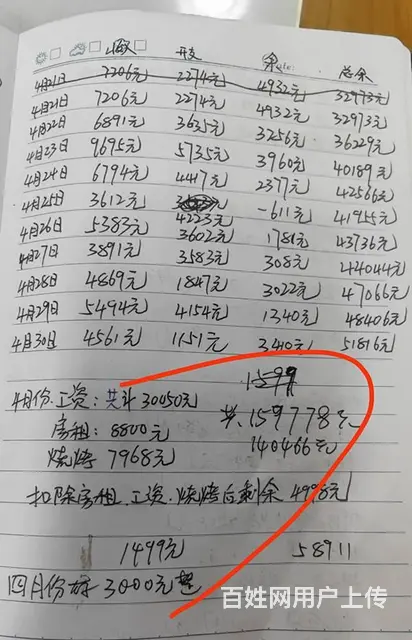 收入 开支 余 总余
4月21日 7206元 2274元 4932元 32973元
4月21日 7206元 2274元 4932元 32973元
4月22日 6891元 3635元 3256元 36229元
4月23日 9695元 5735元 3960元 40189元
4月24日 6794元 4417元 2377元 42566元
4月25日 3612元 4223元 -611元 41955元
4月26日 5383元 3602元 1781元 43736元
4月27日 3891元 3583元 308元 44044元
4月28日 4869元 1847元 3022元 47066元
4月29日 5494元 4154元 1340元 48406元
4月30日 4561元 1151元 3410元 51816元
1599
4月份工资:共计30450元
共:159778元
房租:8800元
140466元
烧烤 7968元
扣除房租、工资、烧烤后剩余 4998元
1499元 58911
四月份 3000元
百姓网用户上传